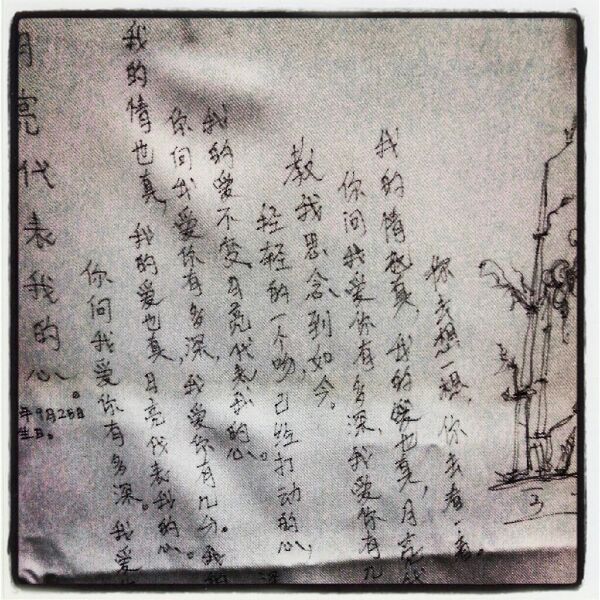 月亮代表我的心。
年9月28日
生日。
你问我爱你有多深。我爱
我的情也真 我的爱也真 月亮代表我的心。
你问我爱你有多深,我爱你有几分。我的
我的爱不变,月亮代表我的心。
轻轻的一个吻 已经打动的心,深
教我思念到如今。
你问我爱你有多深,我爱你有几
我的情也真,我的爱也真,月亮代
你去想一想,你去看一看。